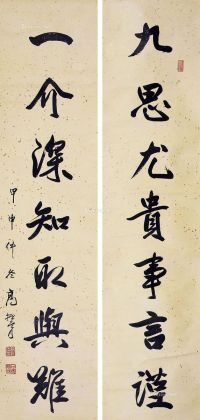 九思尤貴事言謹
一介深知取與難
甲申仲冬 高振霄